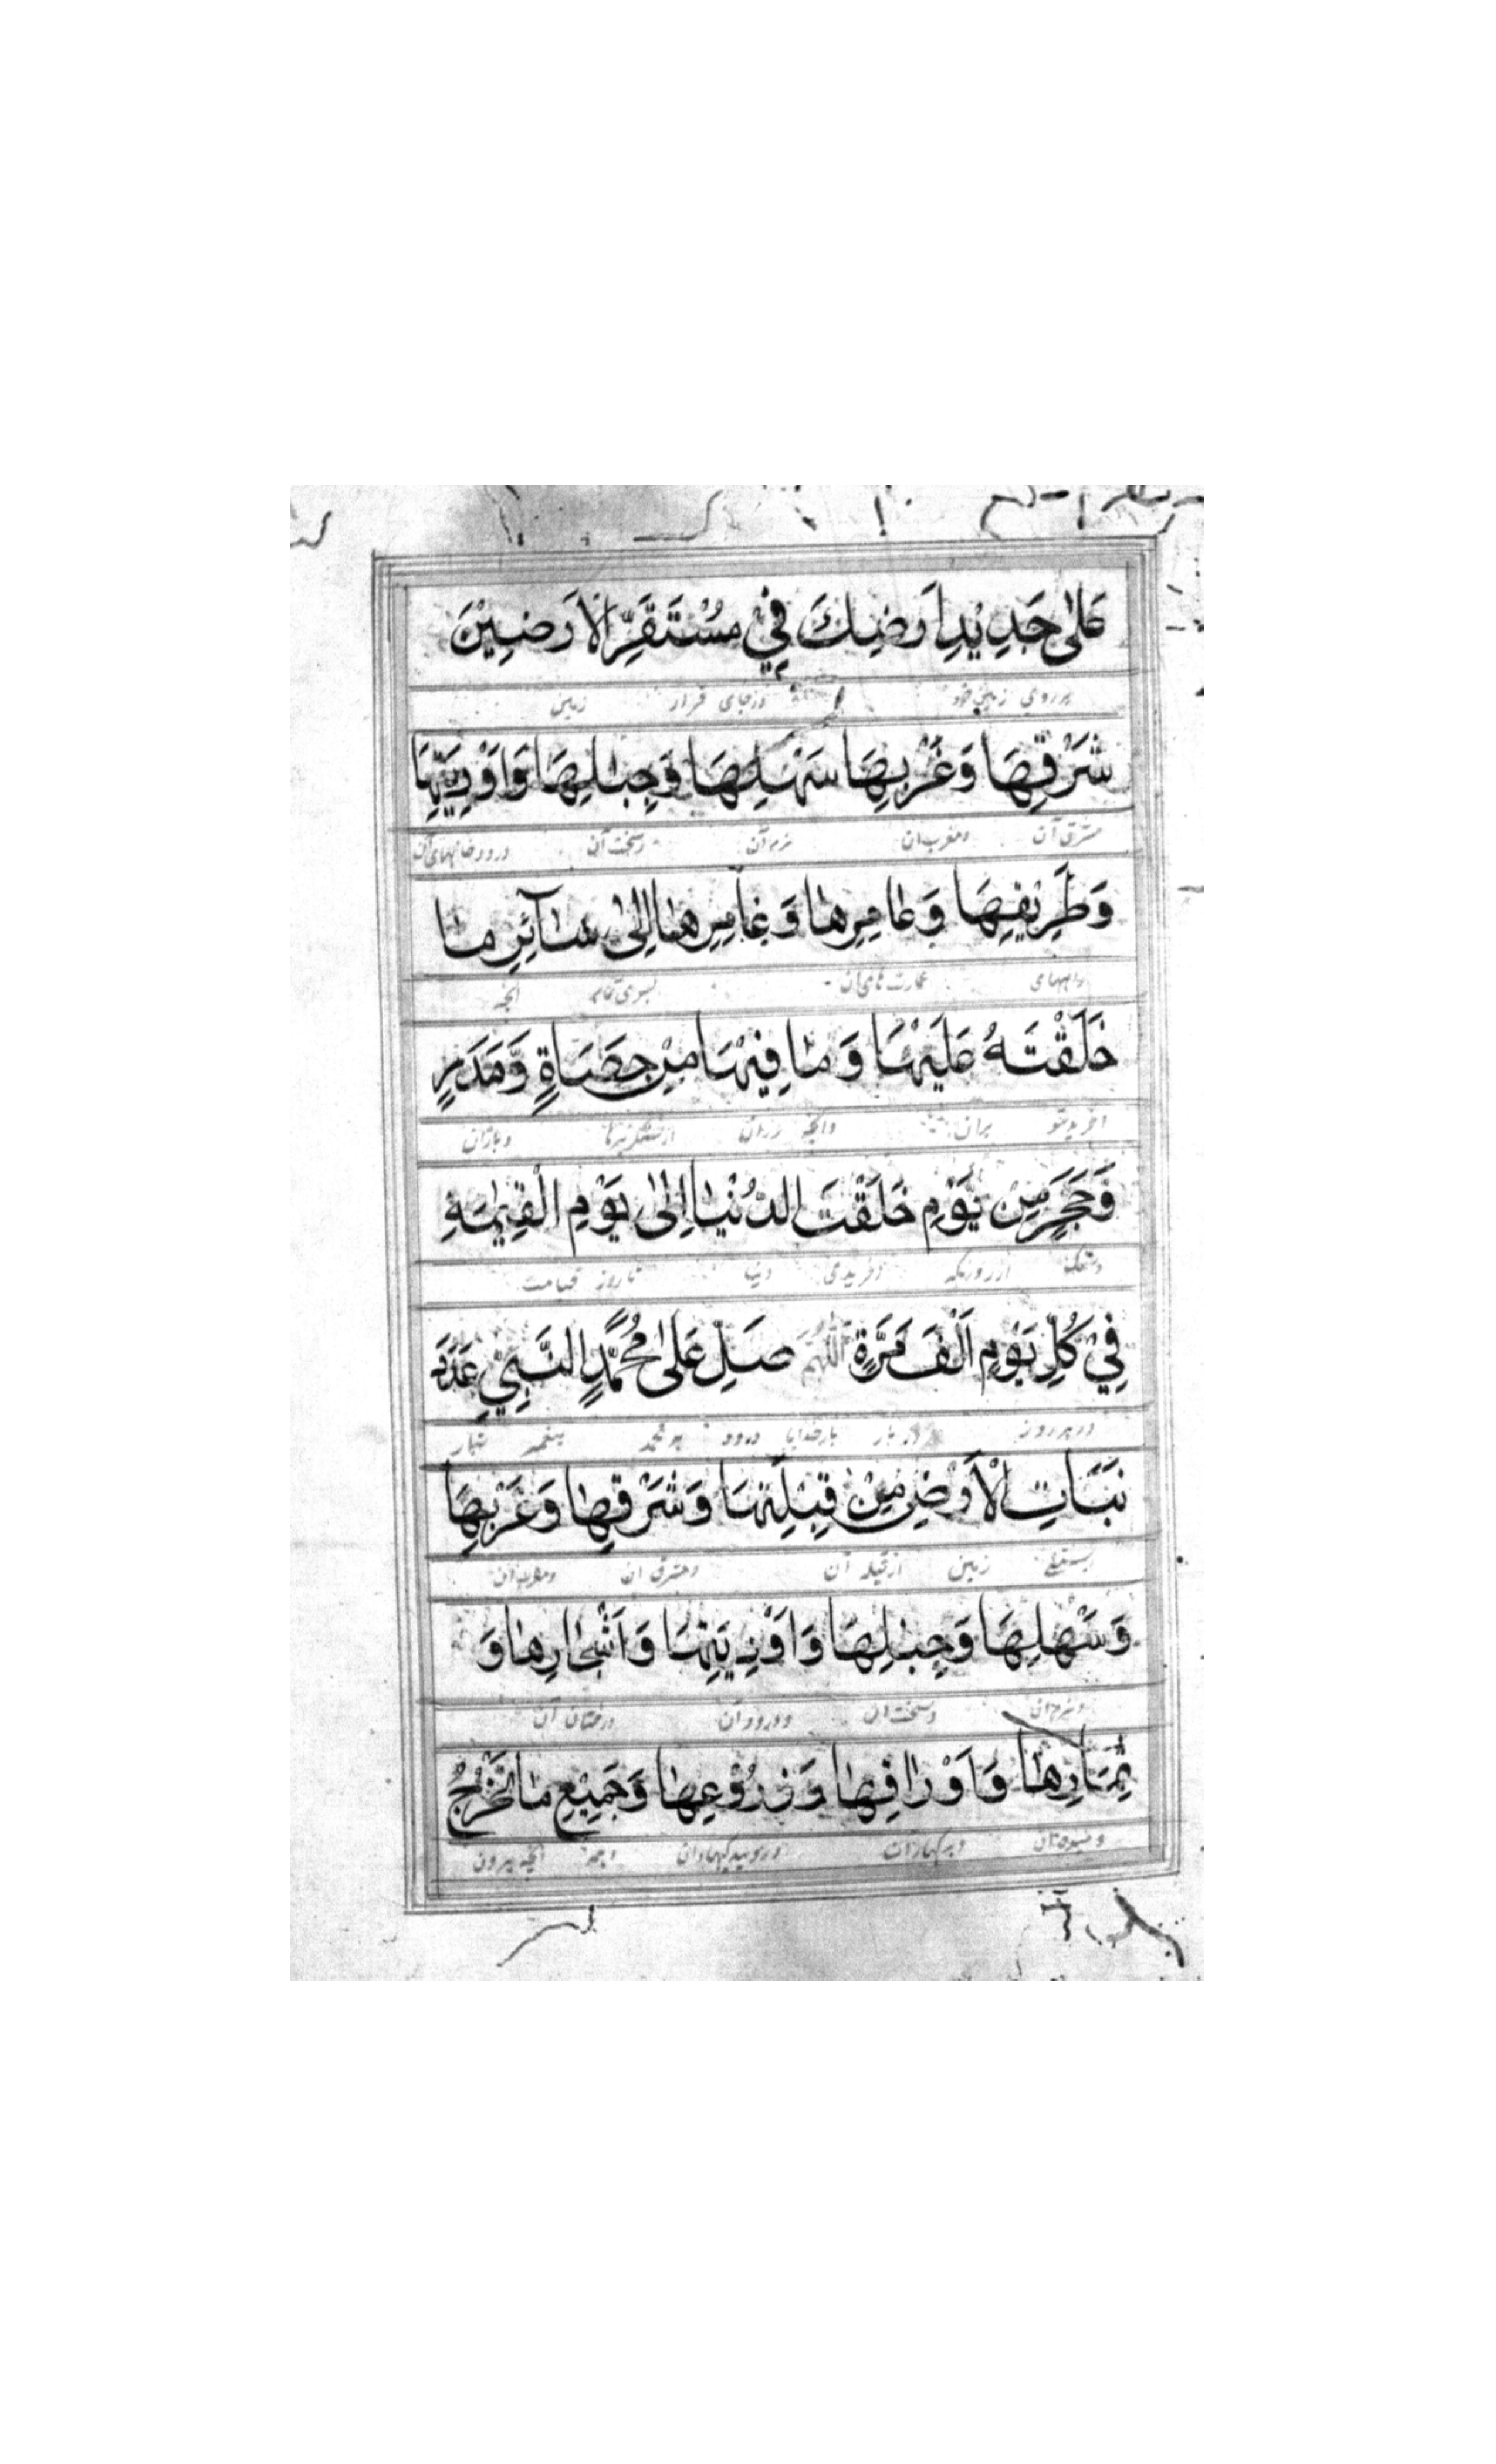 عَلٰى جَدِيْدِ اَرْضِكَ فِيْ مُسْتَقَرِّ الْاَرَضِيْنَ
بر روی زمین خود در جای قرار زمین
شَرْقِهَا وَغَرْبِهَا سَهْلِهَا وَجِبَالِهَا وَاَوْدِيَتِهَا
مشرق آن ومغرب ان نرم آن وسخت آن ورودخانهای آن
وَطَرِيْقِهَا وَعَامِرِهَا وَغَامِرِهَا اِلٰى سَآئِرِ مَا
راههای عمارت های ان بسوی تمام آنچه
خَلَقْتَهُ عَلَيْهَا وَمَا فِيْهَا مِنْ حَصَاةٍ وَّمَدَرٍ
افریدی تو بران وانچه دران از سنکریزها
وَّحَجَرٍ مِّنْ يَّوْمِ خَلَقْتَ الدُّنْيَا اِلٰى يَوْمِ الْقِيٰمَةِ
وسنک از روزیکه افریدی دنیا تا روز قیامت
فِيْ كُلِّ يَوْمٍ اَلْفَ مَرَّةٍ اَللّٰهُمَّ صَلِّ عَلٰى مُحَمَّدٍ النَّبِيِّ عَدَدَ
در هر روز هزار بار بارخدایا درود بر محمد پیغمبر شمار
نَبَاتِ الْاَرْضِ مِنْ قِبْلَتِهَا وَشَرْقِهَا وَغَرْبِهَا
زمین از قبله آن ومشرق ان ومغرب ان
وَسَهْلِهَا وَجِبَالِهَا وَاَوْدِيَتِهَا وَاَشْجَارِهَا وَ
ونرم ان وسخت ان ورود آن ودرختان آن
ثِمَارِهَا وَاَوْرَاقِهَا وَزُرُوْعِهَا وَجَمِيْعِ مَا تَخْرُجُ
ومیوه ان وبرکهای ان انچه بیرون